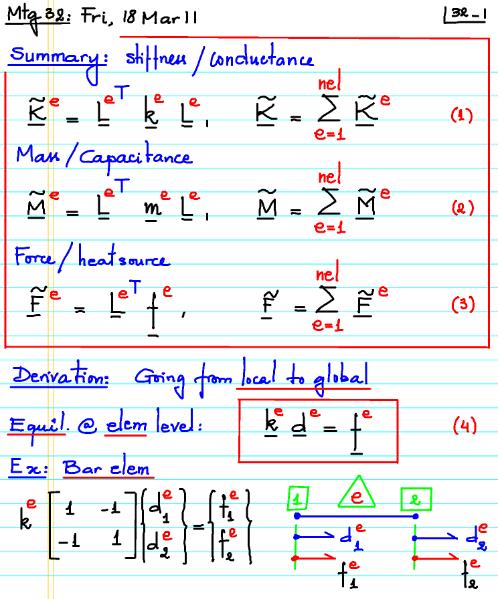 Mtg 32: Fri, 18 Mar 11 32-1
Summary: stiffness/conductance
K̃^e = L^eT k^e L^e, K̃ = Σ_{e=1}^{nel} K̃^e (1)
Mass/Capacitance
M̃^e = L^eT m^e L^e, M̃ = Σ_{e=1}^{nel} M̃^e (2)
Force/heat source
F̃^e = L^eT f^e, F̃ = Σ_{e=1}^{nel} F̃^e (3)
Derivation: Going from local to global
Equil. @ elem level: k^e d^e = f^e (4)
Ex: Bar elem
k^e [1 -1; -1 1] {d_1^e; d_2^e} = {f_1^e; f_2^e}
1 e 2
d_1^e d_2^e
f_1^e f_2^e